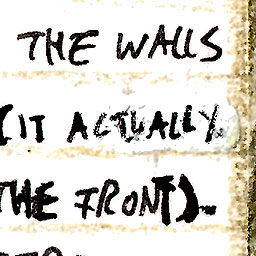 THE WALLS
(IT ACTUALLY
THE FRONT).